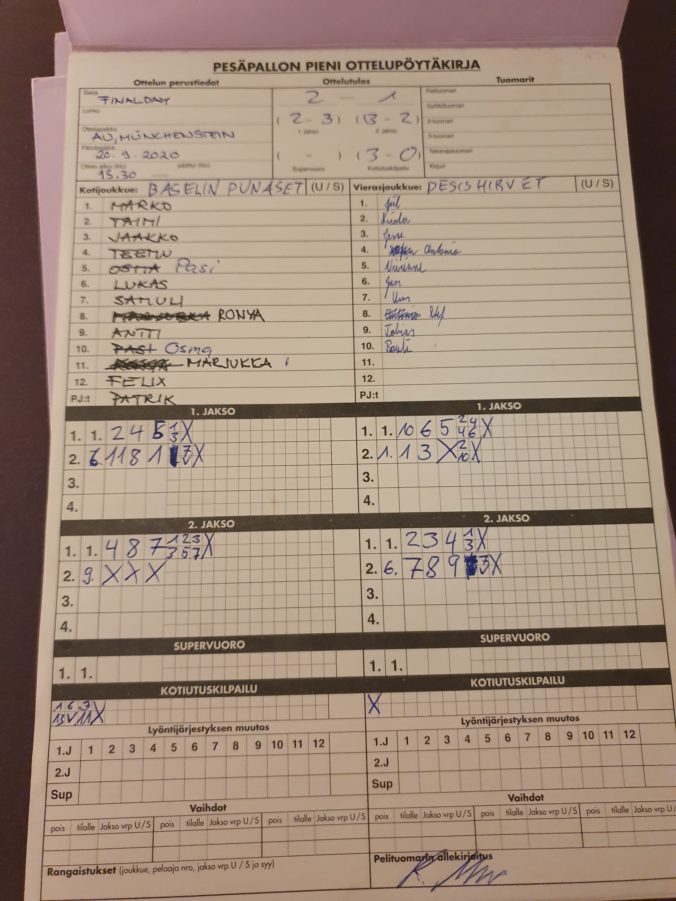 PESÄPALLON PIENI OTTELUPÖYTÄKIRJA
Ottelun perustiedot Ottelutulos Tuomarit
Sarja FINALDAY 2 - 1 Pelituomari
Lohko (2-3) (3-2) Syöttötuomari
1. jakso 2. jakso 2-tuomari
Ottelupaikka AU, MÜNCHENSTEIN 3-tuomari
Päivämäärä 20.9.2020 ( - ) (3-0) Takarajatuomari
Supervuoro Kotiutuskilpailu Kirjuri
Ottelu alkoi (klo) päättyi (klo)
15.30
Kotijoukkue: BASELIN PUNASET (U / S) Vierasjoukkue: (U / S)
1. MARKO 1.
2. TAIMI 2. Nicolas
3. JAAKKO 3.
4. TEEMU 4.
5. OSMA Pasi 5.
6. LUKAS 6. Jan
7. SAMULI 7. Urs
8. RONYA 8.
9. ANTTI 9. Tobias
10. PASI Osma 10.
11. MARJUKKA 11.
12. FELIX 12.
PJ:t PATRIK PJ:t
1. JAKSO 1. JAKSO
1. 1. 2 4 5 1 3 X 1. 1. 10 6 5 2 4 4 6 X
2. 6. 11 8 1 7 X 2. 1. 1 3 X 2 10 X
3. 3.
4. 4.
2. JAKSO 2. JAKSO
1. 1. 4 8 7 1 2 3 3 5 7 X 1. 1. 2 3 4 1 3 X
2. 9. X X X 2. 6. 7 8 9 3 X
3. 3.
4. 4.
SUPERVUORO SUPERVUORO
1. 1. 1. 1.
KOTIUTUSKILPAILU KOTIUTUSKILPAILU
1 6 3 X
13 V 11 X
Lyöntijärjestyksen muutos Lyöntijärjestyksen muutos
1.J 1 2 3 4 5 6 7 8 9 10 11 12 1.J 1 2 3 4 5 6 7 8 9 10 11 12
2.J 2.J
Sup Sup
Vaihdot Vaihdot
pois tilalle Jakso vrp U / S pois tilalle Jakso vrp U / S pois tilalle Jakso vrp U / S pois tilalle Jakso vrp U / S pois tilalle Jakso vrp U / S pois tilalle Jakso vrp U / S
Rangaistukset (joukkue, pelaaja nro, jakso vrp U / S ja syy) Pelituomarin allekirjoitus